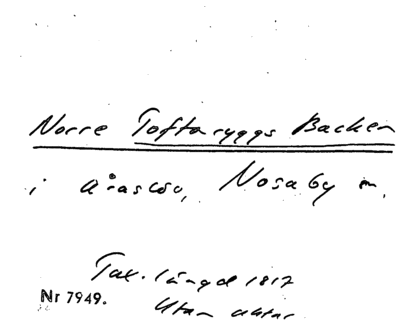 Norre Toftaryggs Backen
i Araslöv, Nosaby sn.
Tax. längd 1817
Nr 7949.
Utan aktar